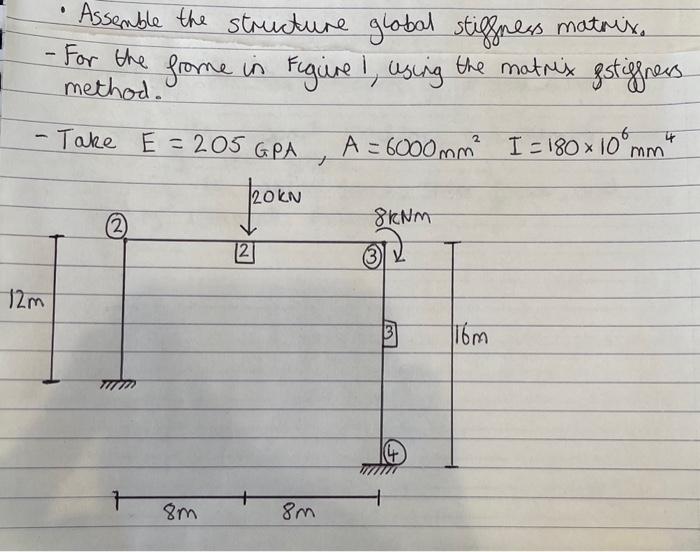 • Assemble the structure global stiffness matrix.
- For the frame in Figure 1, using the matrix stiffness
method.
- Take E = 205 GPA, A = 6000mm² I = 180 × 10⁶ mm⁴
20kN
8kNm
2
2
3
12m
3
16m
4
8m 8m